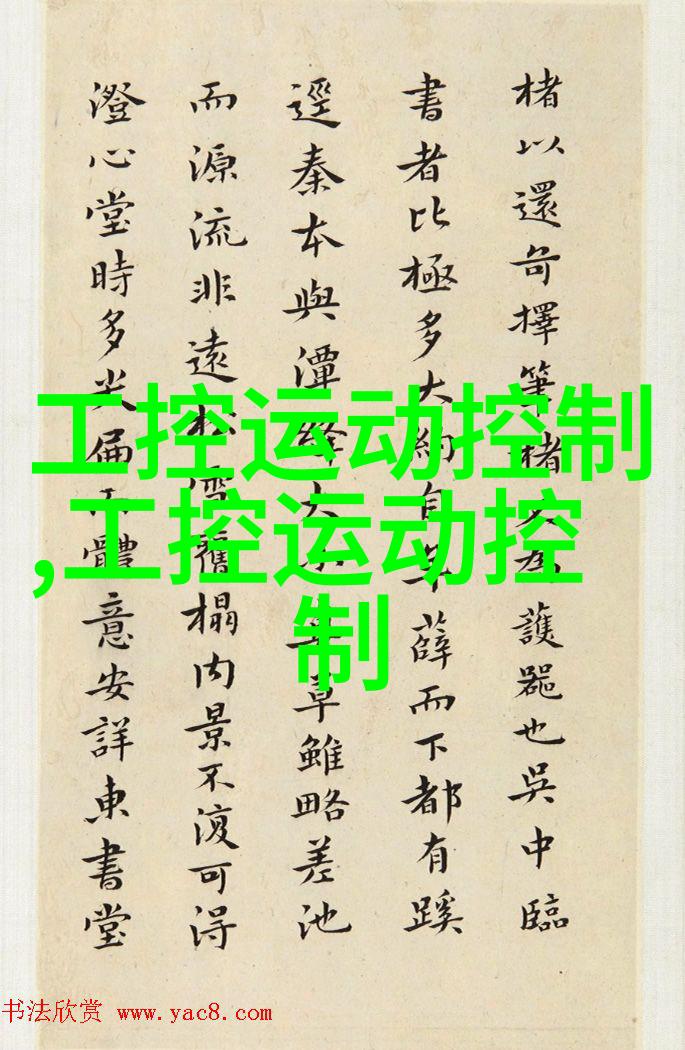 楮以還奇擇筆楮護器也吳中臨
書者比極多大約自薛而下都有蹊
逕秦本與潭絳大草雖略差池
而源流非遠松雪舊榻内景不復可得
澄心堂時多尖偏體意安詳東書堂
工控运动控制
,工控运动控
制
书法欣赏 www.yac8.com